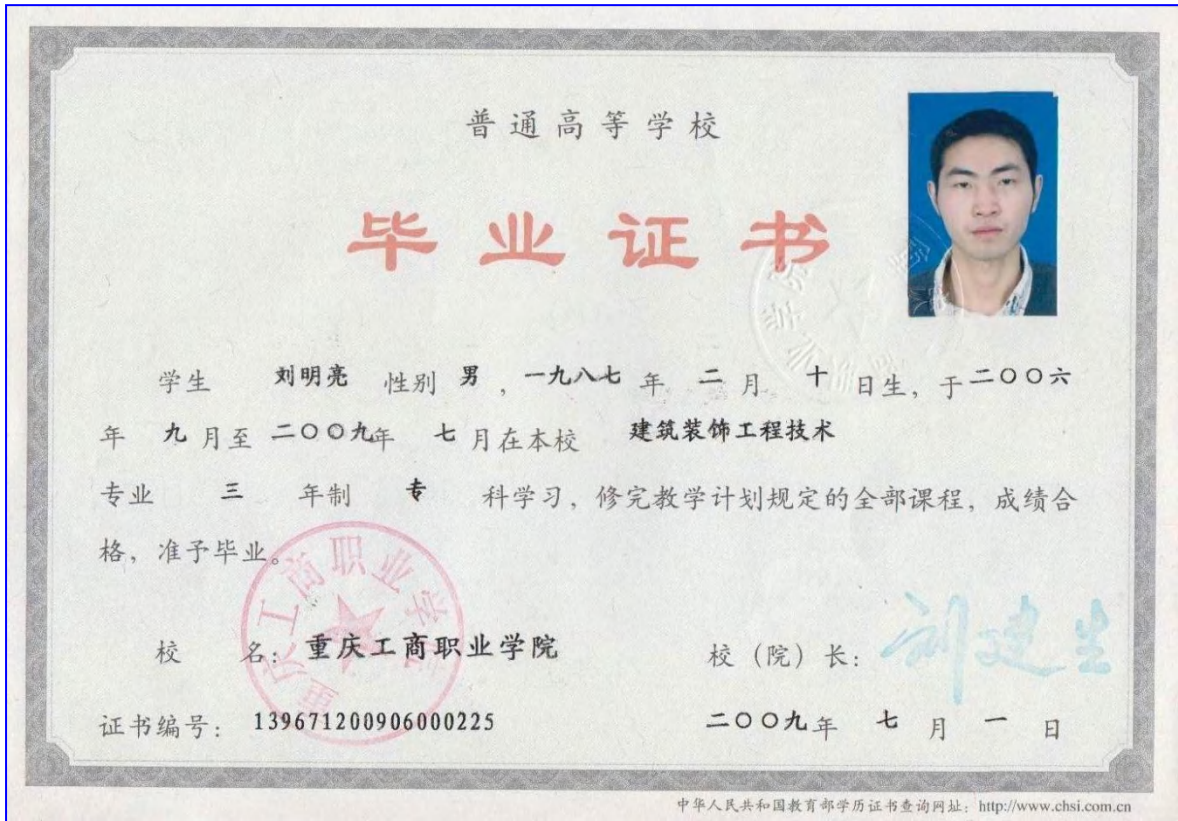 普通高等学校
毕业证书
学生 刘明亮 性别 男,一九八七 年 二 月 十 日生,于二〇〇六
年 九 月至 二〇〇九年 七 月在本校 建筑装饰工程技术
专业 三 年制 专 科学习,修完教学计划规定的全部课程,成绩合
格,准予毕业。
重庆工商职业学院
校 名:重庆工商职业学院 校(院)长:刘建生
证书编号:139671200906000225 二〇〇九年 七 月 一 日
中华人民共和国教育部学历证书查询网址:http://www.chsi.com.cn